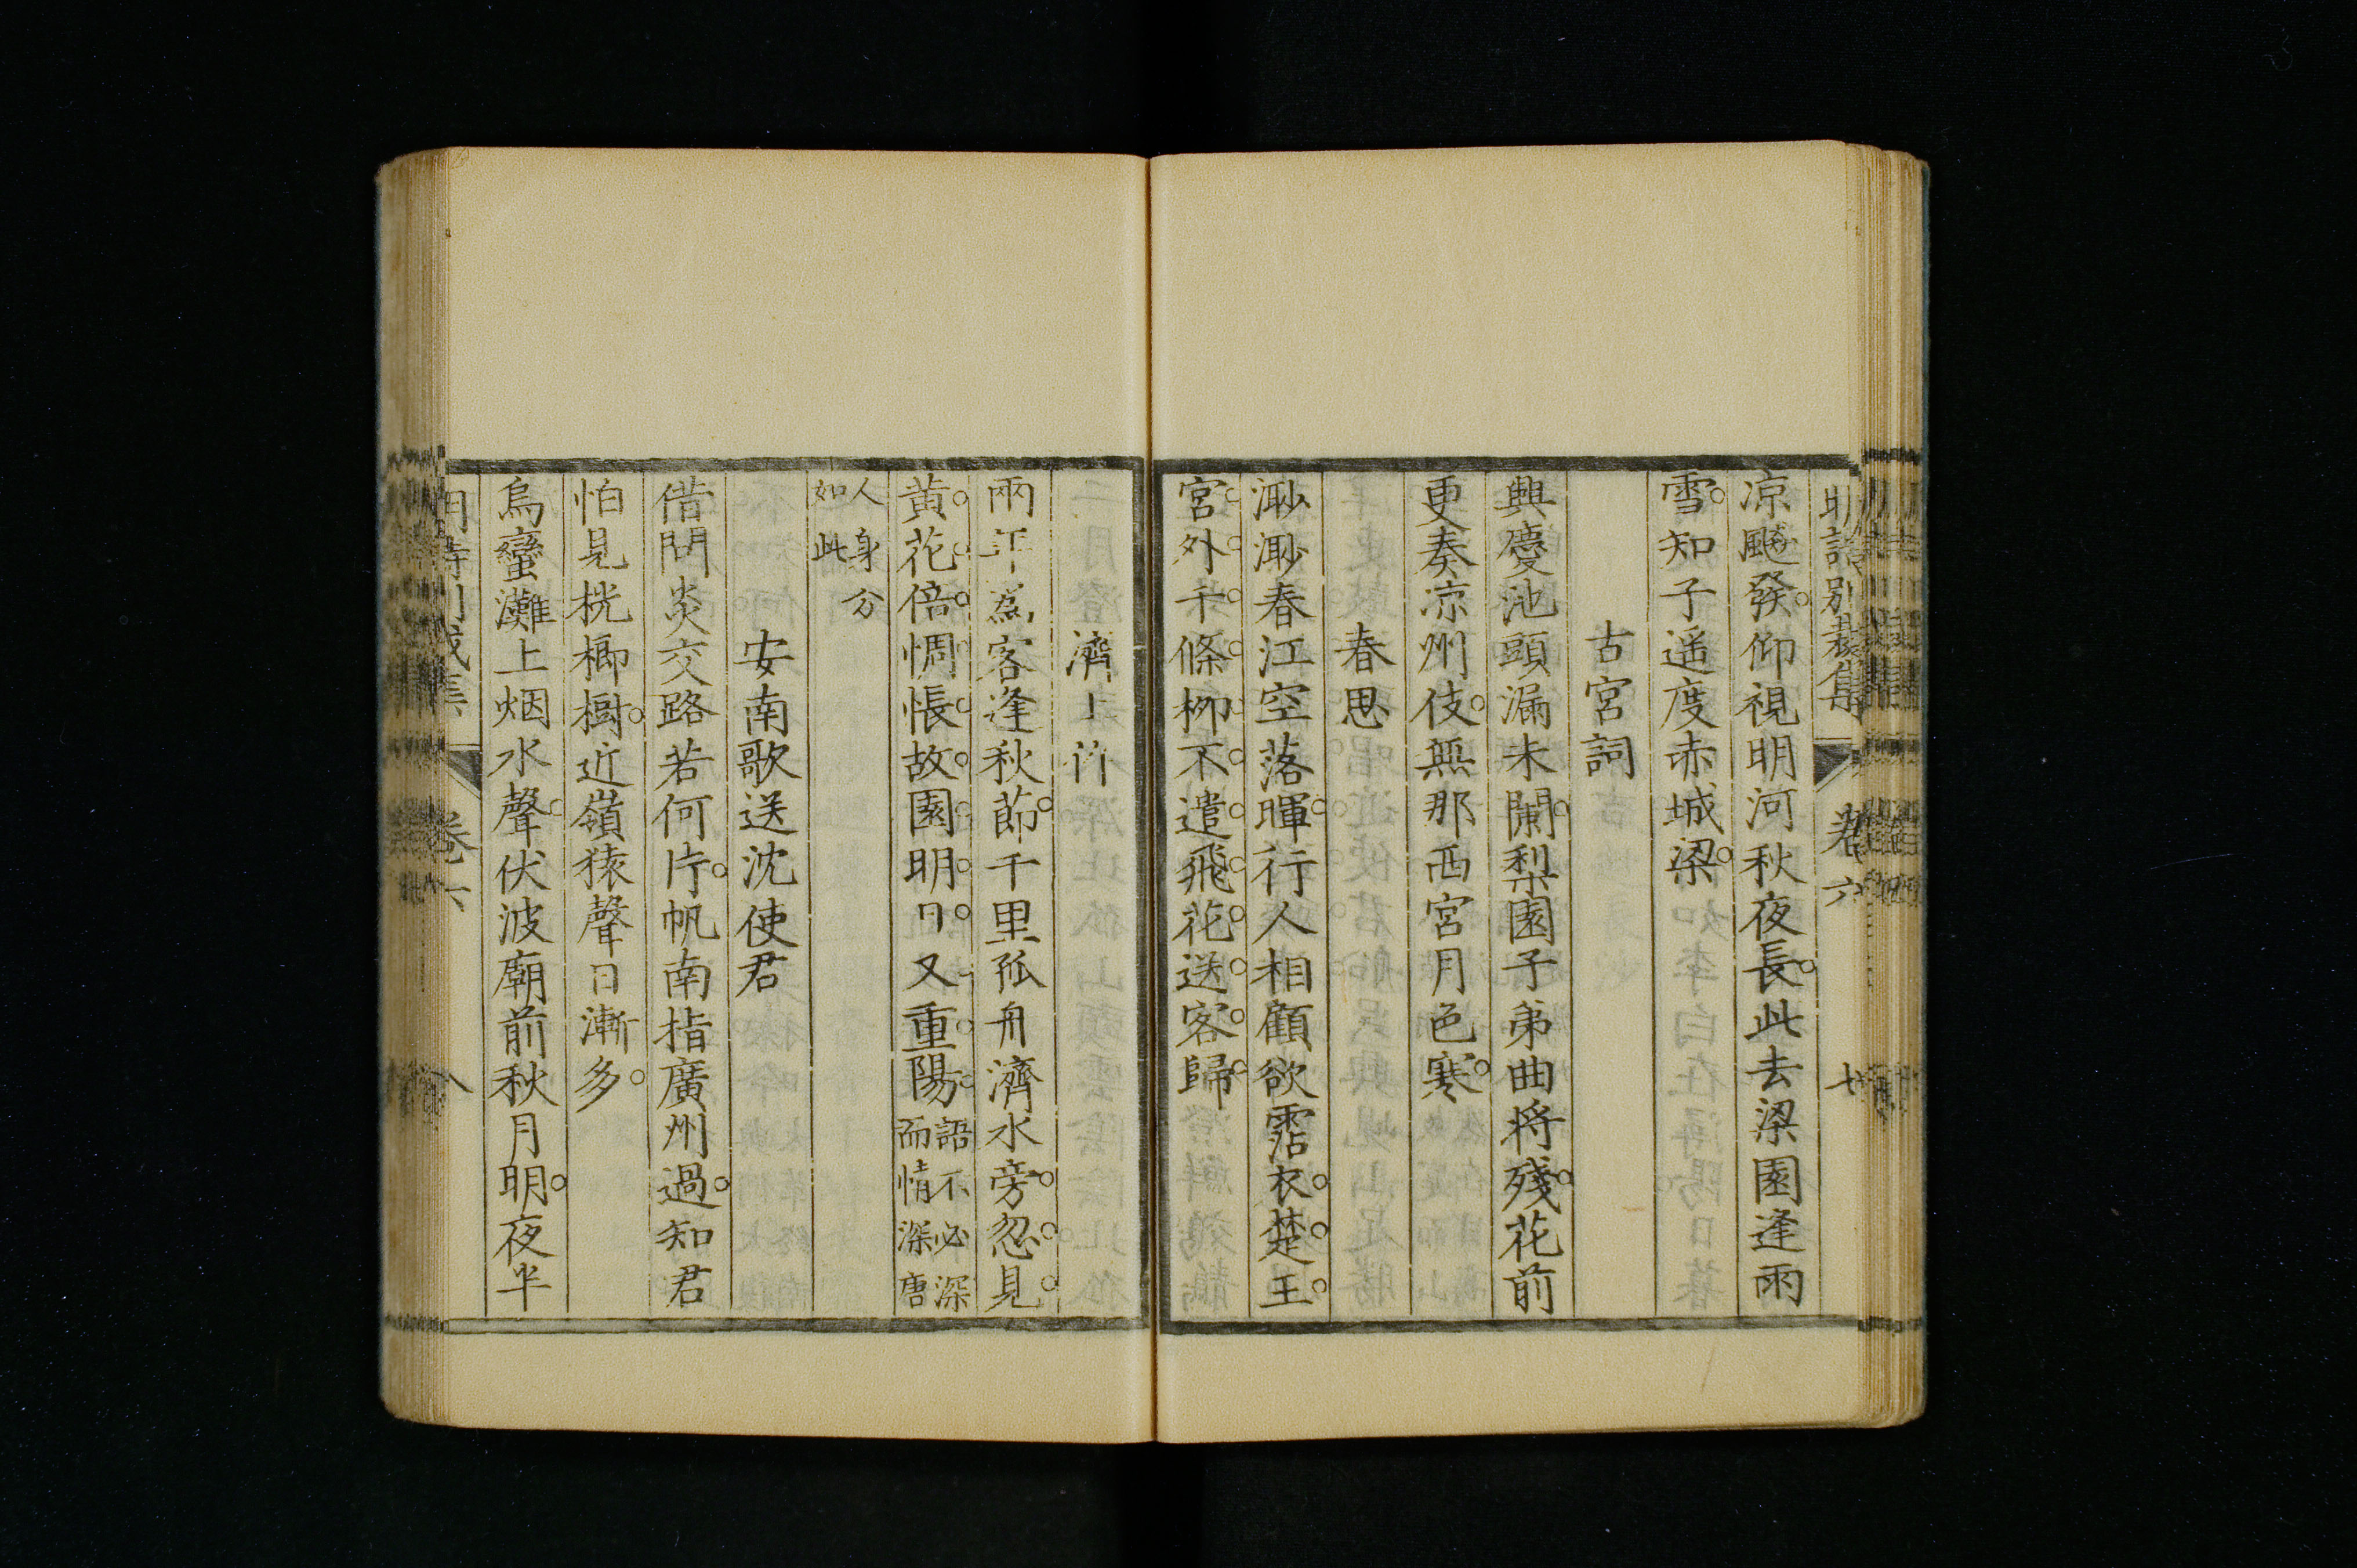 明詩別裁集 卷六 七
凉颸發仰視明河秋夜長此去梁園逢雨
雪知子遥度赤城梁
古宮詞
興慶池頭漏未闌梨園子弟曲將殘花前
更奏凉州伎無那西宮月色寒
春思
渺渺春江空落暉行人相顧欲霑衣楚王
宮外千條柳不遣飛花送客歸
濟上作
兩年爲客逢秋莭千里孤舟濟水旁忽見
黃花倍惆悵故園明日又重陽語不必深
而情深唐
人身分
如此
安南歌送沈使君
借問炎交路若何片帆南指廣州過知君
怕見桄榔樹近嶺猿聲日漸多
烏蠻灘上烟水聲伏波廟前秋月明夜半
卷六 八